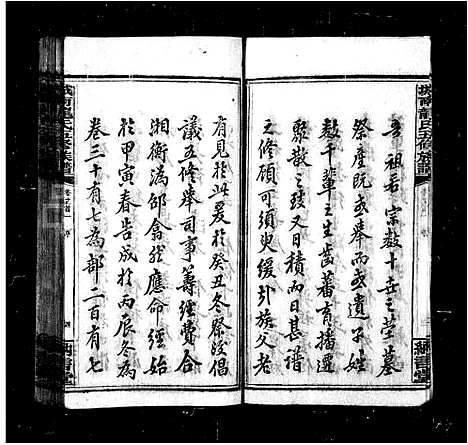 城南龍氏五修族譜
吾祖若宗數十世之塋墓
祭產既或舉而或遺子姓
數千輩之生齒蕃育播遷
聚散之跡又日積而日甚譜
之修顧可須臾緩外族父老
有見於此爰於癸丑冬祭設倡
議五修舉司事籌經費合
湘衡滿邵翕然應命經始
於甲寅春告成於丙辰冬為
卷三十有七為部二百有七